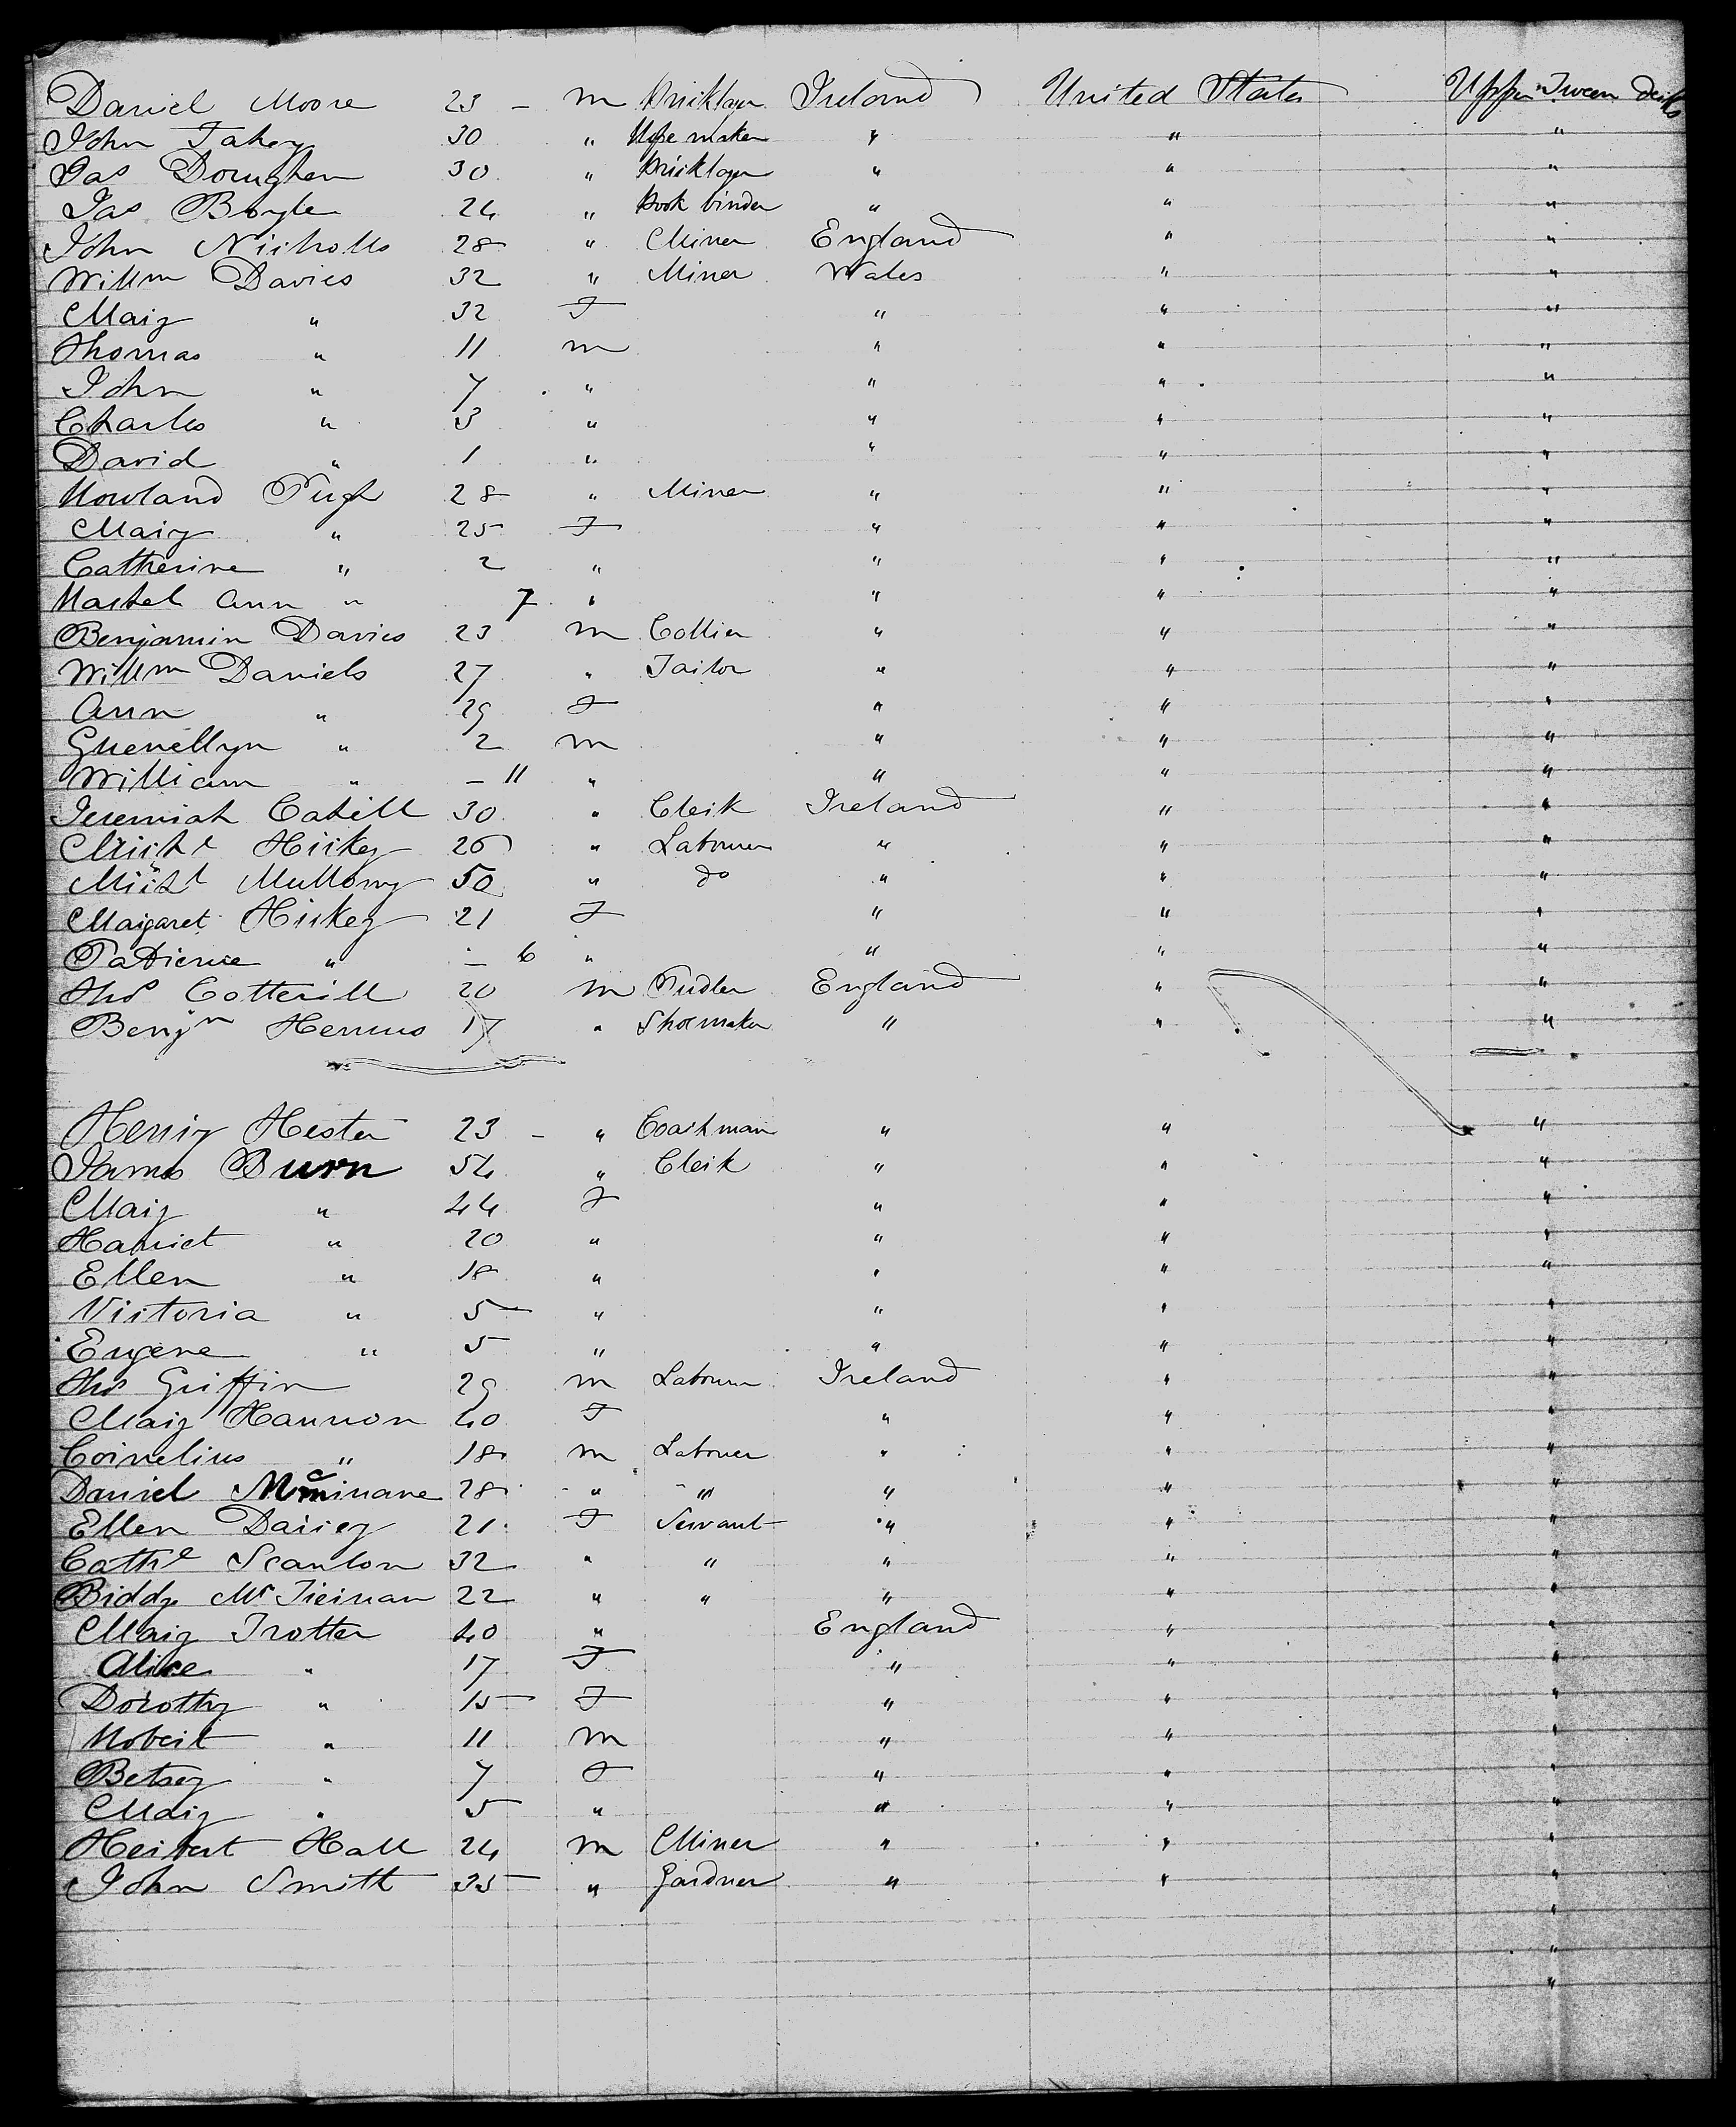 Daniel Moore 23 – m Bricklayer Ireland United States Upper Tween decks
John Fahey 30 " Rope maker " " "
Jas Doughen 30 " Bricklayer " " "
Jas Boyle 24 " Book binder " " "
John Nicholls 28 " Miner England " "
Willm Davies 32 " Miner Wales " "
Mary " 32 F " " "
Thomas " 11 m " " "
John " 7 " " " "
Charles " 3 " " " "
David " 1 " " " "
Rowland Pugh 28 " Miner " " "
Mary " 25 F " " "
Catherine " 2 " " " "
Ann " 7 " " " "
Benjamin Davies 23 m Collier " " "
Willm Daniels 27 " Tailor " " "
Ann " 29 F " " "
Guenellyn " 2 m " " "
William " – 11 " " " "
Jeremiah Cahill 30 " Clerk Ireland " "
Michl Hickey 26 " Labourer " " "
Michl Mullony 50 " do " " "
Margaret Hickey 21 F " " "
Patience " – 6 " " " "
Thos Cotterill 20 m Pudler England " "
Benjn 17 " Shoemaker " " "
Henry Hester 23 – " Coachman " " "
James Burn 54 " Clerk " " "
Mary " 44 F " " "
Harriet " 20 " " " "
Ellen " 18 " " " "
Victoria " 5 " " " "
Eugene " 5 " " " "
Thos Griffin 29 m Labourer Ireland " "
Mary Hannon 40 F " " "
Cornelius " 18 m Labourer " " "
Daniel 28 " " " " "
Ellen Darcey 21 F Servant " " "
Cathe Scanlon 32 " " " " "
Biddy McTiernan 22 " " " " "
Mary Trotter 40 " England " "
Alice " 17 F " " "
Dorothy " 15 F " " "
Robert " 11 m " " "
Betsey " 7 F " " "
Mary " 5 " " " "
Herbert Hall 24 m Miner " " "
John Smith 35 " Gardner " " "
"
"
"